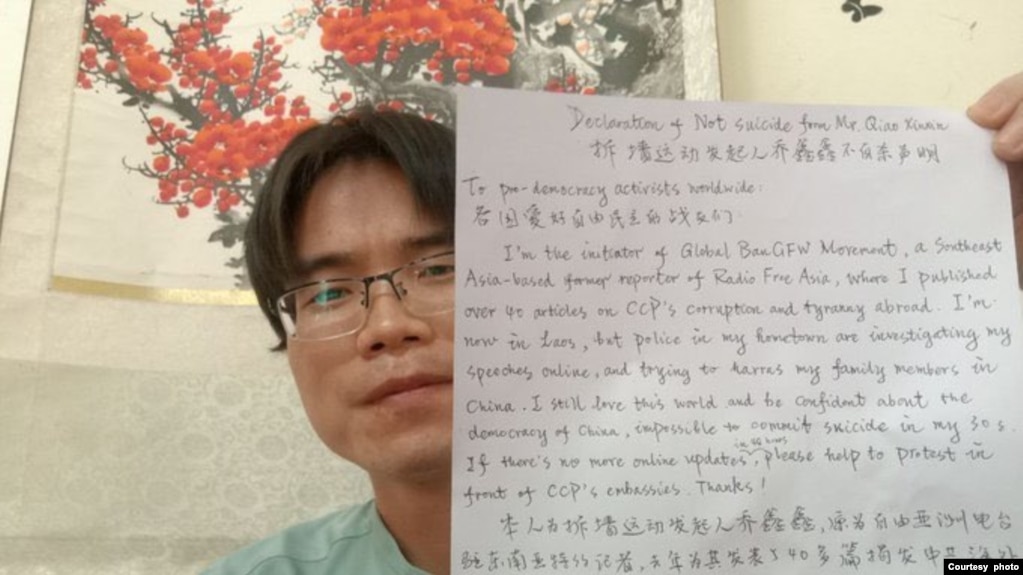 Declaration of Not suicide from Mr. Qiao Xinxin
拆墙运动发起人乔鑫鑫不自杀声明
To pro-democracy activists worldwide:
各国爱好自由民主的战友们:
I'm the initiator of Global BanGFW Movement, a Southeast
Asia-based former reporter of Radio Free Asia, where I published
over 40 articles on CCP's corruption and tyranny abroad. I'm
now in Laos, but police in my hometown are investigating my
speeches online, and trying to harras my family members in
China. I still love this world and be confident about the
democracy of China, impossible to commit suicide in my 30s.
If there's no more online updates in 24 hours, please help to protest in
front of CCP's embassies. Thanks!
本人为拆墙运动发起人乔鑫鑫,原为自由亚洲电台
驻东南亚特约记者,去年为其发表了40多篇揭发中共海外
Courtesy photo